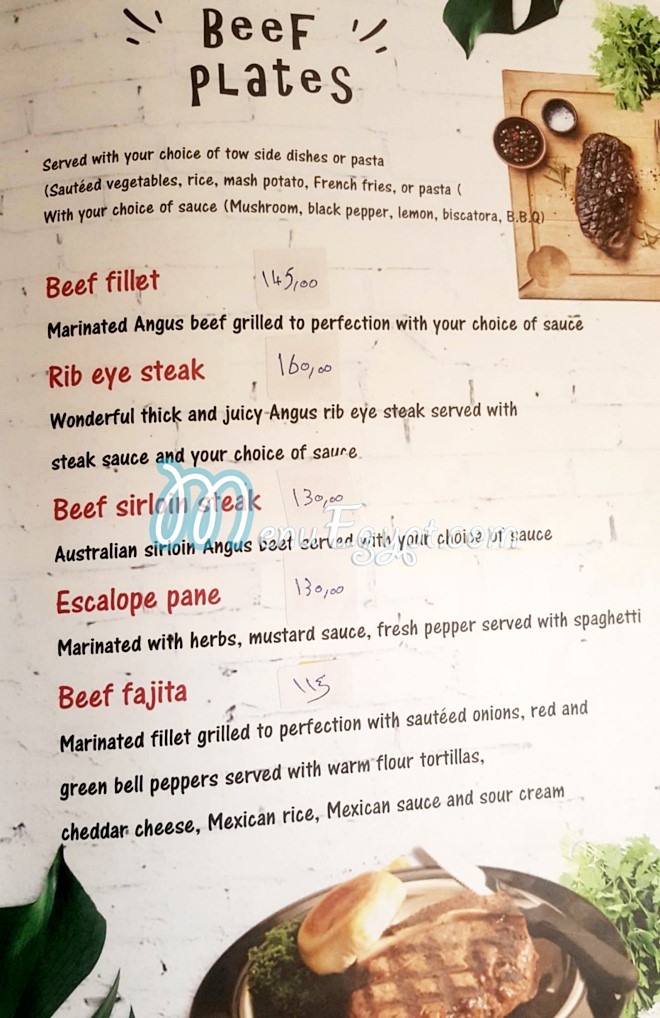 Beef
Plates
Served with your choice of tow side dishes or pasta
(Sautéed vegetables, rice, mash potato, French fries, or pasta (
With your choice of sauce (Mushroom, black pepper, lemon, biscatora, B.B.Q)
Beef fillet 145,00
Marinated Angus beef grilled to perfection with your choice of sauce
Rib eye steak 160,00
Wonderful thick and juicy Angus rib eye steak served with
steak sauce and your choice of sauce.
Beef sirloin steak 130,00
Australian sirloin Angus beef served with your choise of sauce
MenuEgypt.com
Escalope pane 130,00
Marinated with herbs, mustard sauce, fresh pepper served with spaghetti
Beef fajita 115
Marinated fillet grilled to perfection with sautéed onions, red and
green bell peppers served with warm flour tortillas,
cheddar cheese, Mexican rice, Mexican sauce and sour cream